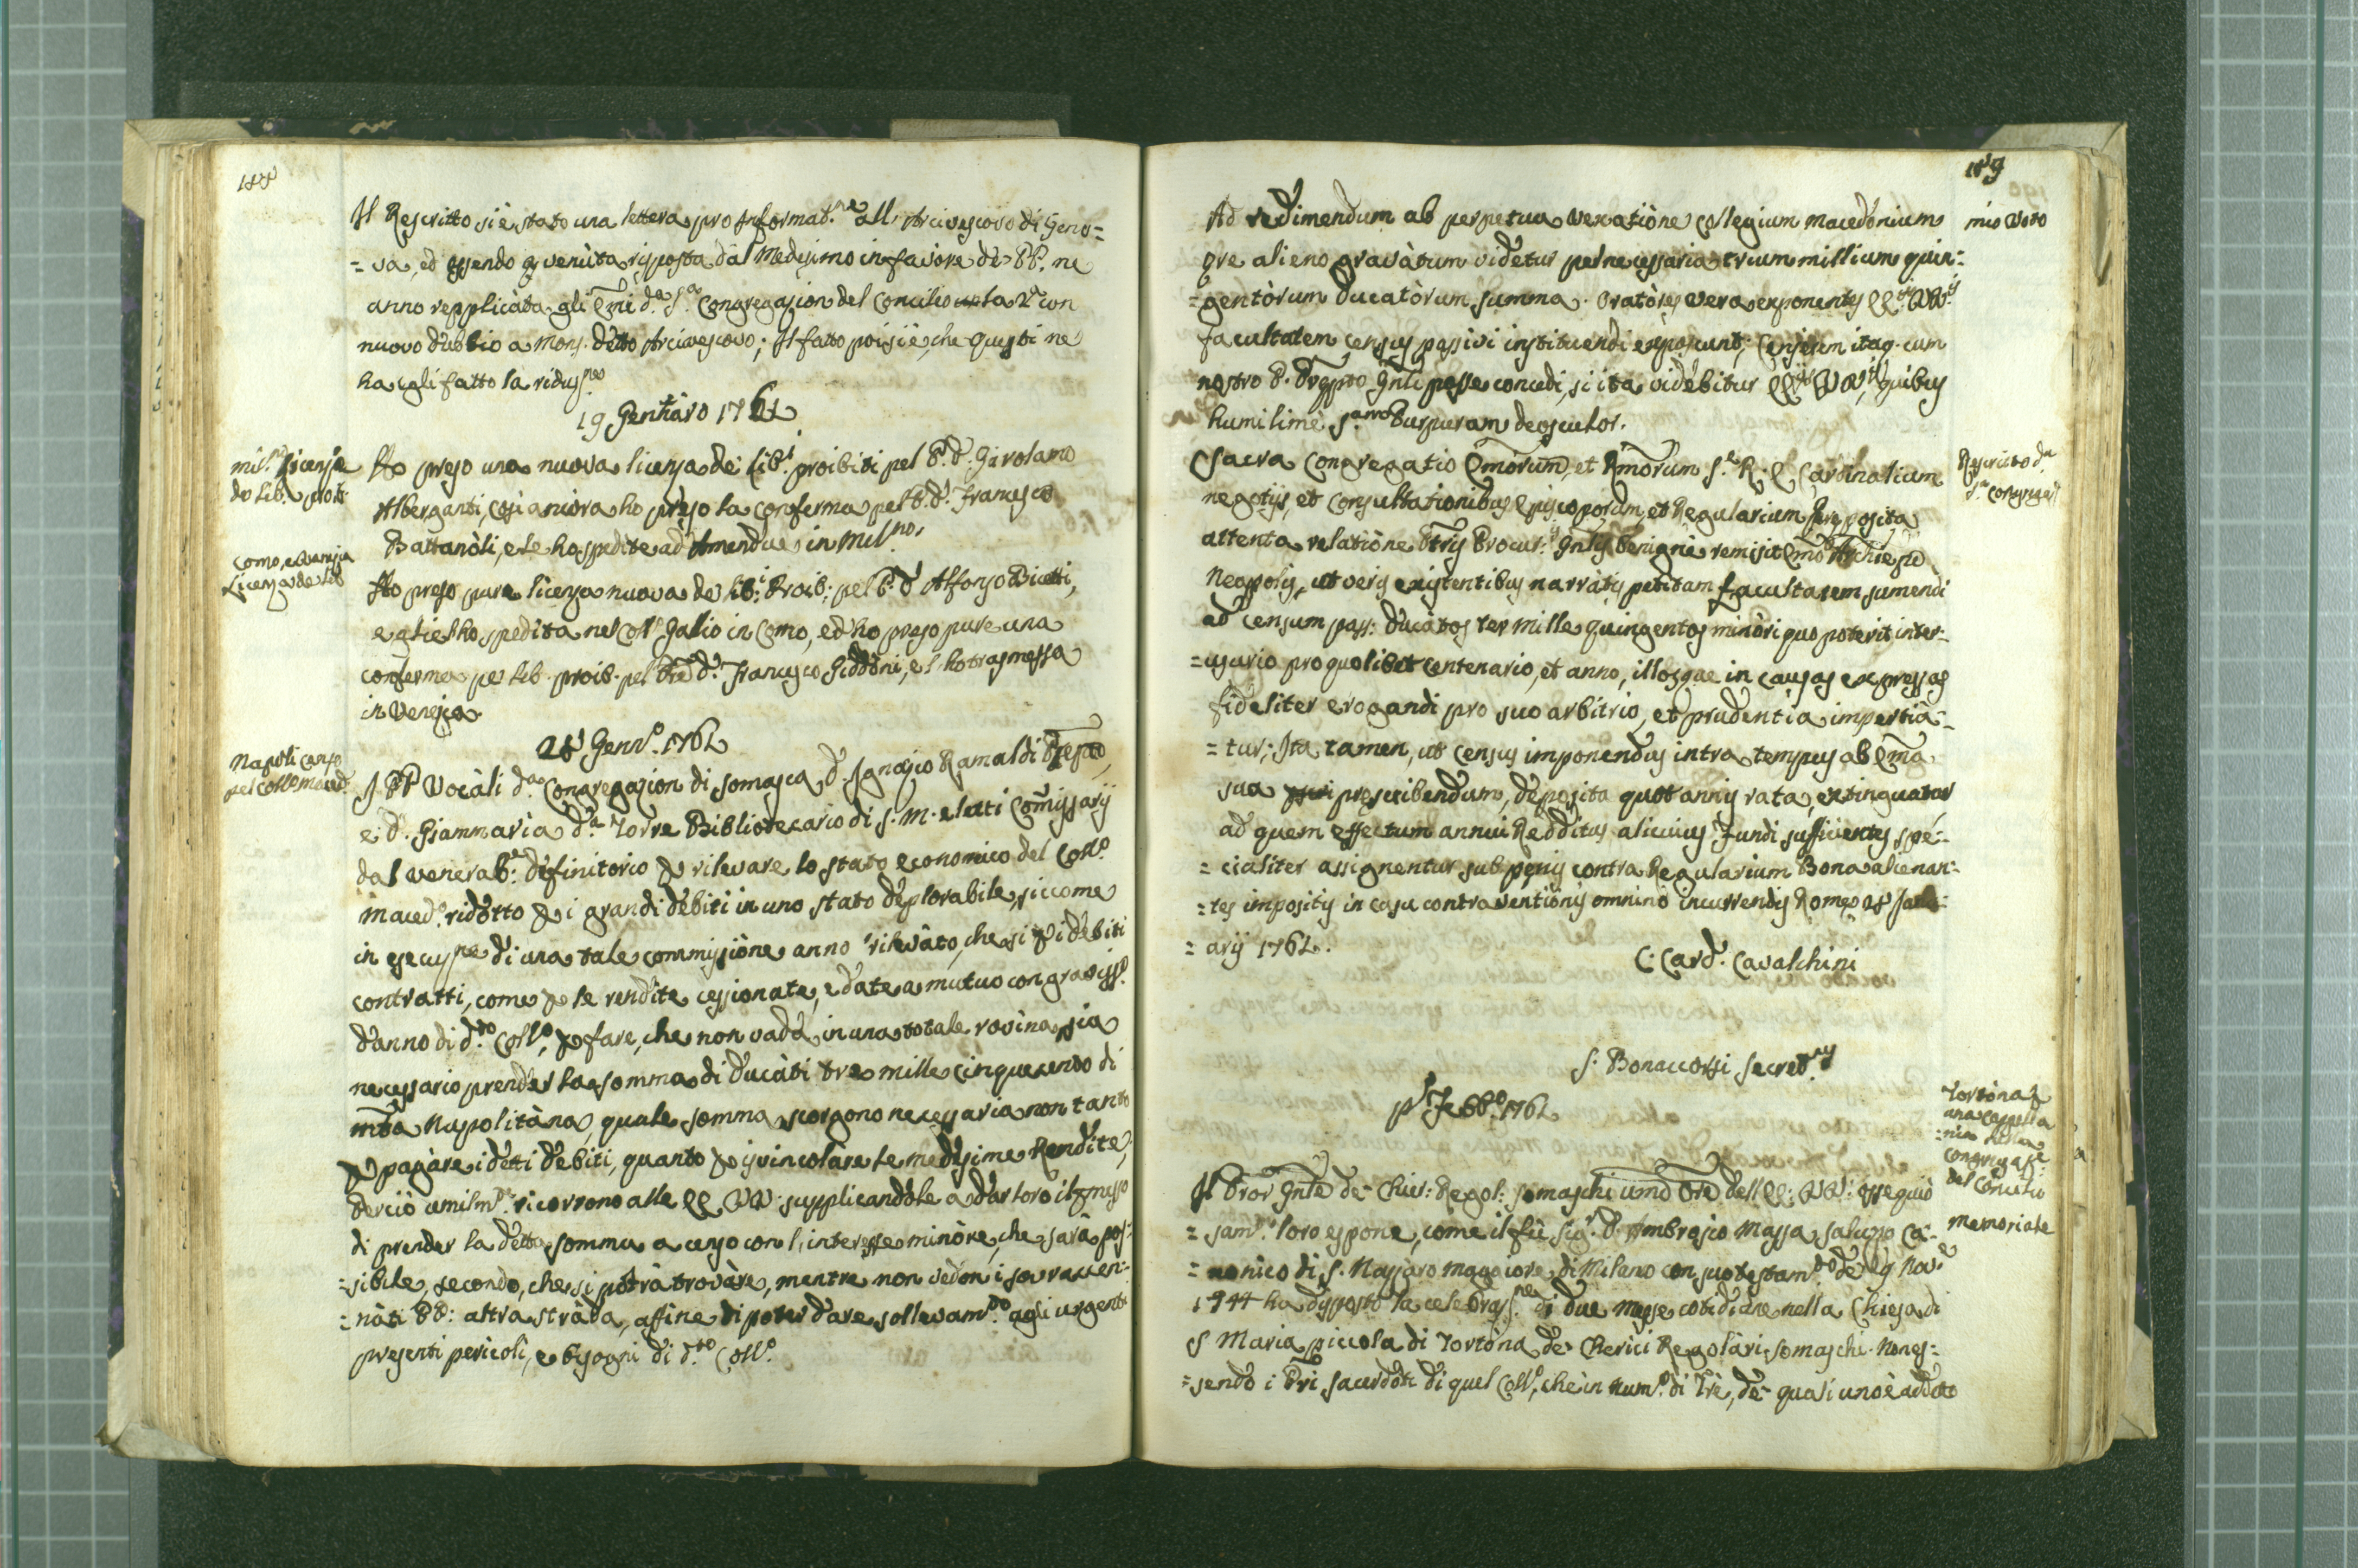 188
Il Rescritto si è stato una lettera pro Informat.ne all' Arcivescovo di Geno=
=va, ed essendo gi venùta risposta dal Medesimo in favore de' PP. ne
anno repplicàta gli Emi d.a S.a Congregazion del Concilio la 2.a con
nuovo dubbio a Mons. detto Arcivescovo; Il fatto poi si è, che questi ne
ha egli fatto la riduss.ne
19 Gennàro 1762
mil.no licenza
de lib. proib.
Ho preso una nuova licenza de' lib.i proibiti pel P. D. Girolamo
Alberganti, così ancora ho preso la conferma pel P. D. Francesco
Battanòli, e le ho spedite ad Amendue in Mil.no.
Como, e Venezia
Licenza de lib
Ho preso pure licenza nuova de' lib.i Proib: pel P. D Alfonso Bicetti,
e gliel'ho spedita nel Coll.o Galio in Como, ed ho preso pure una
conferma pe' lib. proib. pel Pre D. Francesco Riddòni, e l'ho trasmessa
in Venezia.
28 Genn.o 1762
Napoli censo
pel Coll.o Maced.
I PP Vocàli d.a Congregazion di Somasca D. Ignazio Ramaldi Prepto,
e D. Giammaria d.a Torre Bibliotecario di S. M. eletti Commissarij
dal venerab.e definitorio p rilevare lo stato economico del Coll.o
Maced.o ridotto p i grandi debiti in uno stato deplorabile, siccome
in esecuz.ne di una tale commissiòne anno rilevàto, che si p i debiti
contratti, come p le rendite cessionate, e date a mutuo con graviss.o
danno di d.to Coll.o, p fare, che non vada in una totale rovina, sia
necessario prender la somma di ducàti tre mille cinquecento di
mta Napolitàna, quale somma scorgono necessaria non tanto
p pagàre i detti debiti, quanto p isvincolare le medesime Rendite,
perciò umilm.te ricorrono alle EE. VV. supplicandole a dar loro il pmesso
di prender la detta somma a censo con l'interesse minòre, che sarà pos=
=sibile, secondo, che si potrà trovàre, mentre non vedon i sovraccen=
=nàti PP: altra stràda, affine di poter dare sollevam.to agli urgenti
presenti pericoli, e bisogni di d.to Coll.o
189
mio Voto
Ad redimendum ab perpetua vexatiòne Collegium Macedònium
ære alieno gravàtum videtur pel necessaria trium millium quin=
=gentòrum Ducatòrum summa. Oratòres vera exponentes EE.is VV.is
facultatem census passivi instituendi exposcunt; Censerem itaq. cum
nostro P. Præpto Gnli posse concedi, si ita videbitur EE.is VV.is, quibus
humilimè S.am Purpuram deosculor.
Rescritto d.a
S.a Congregaz.
Sacra Congregatio Emorum, et Rmorum S.æ R. E. Cardinalium
negotijs, et Consultationibus Episcoporum, et Regularium præposita
attenta relatiòne Ptris Procur.is Gnlis benignè remisit Emo Archiepo
Neapolis, ut veris existentibus narràtis petitam facultatem sumendi
ad censum pass: ducàtos ter mille quingentos minòri quo poterit inter=
=usurio pro quolibet Centenario, et anno, illosque in causas expressas
fideliter erogandi pro suo arbitrio, et prudentia impertia=
=tur; Ita tamen, ut census imponendus intra tempus ab Ema
sua præscribendum, deposita quot annis rata, extinguatur
ad quem effectum annui Redditus alicuius Fundi sufficientes spe=
=cialiter assignentur sub pœnis contra Regularium Bona alienan=
=tes impositis in casu contraventiònis omnino incurrendis Romæ 28 Janu=
=arij 1762.
C. Card. Cavalchini
S. Bonaccorsi Secret.us
P.o Febb.o 1762
Tortòna
una Cappella
=nia
Congregaz.e
del Concilio
Memoriale
Il Pror Gnle de' Chier: Regol: Somaschi umo Ore dell EE. VV. ossequio
=sam.te loro espone, come il fù Sig.r D. Ambrosio Massa Saluzzo Ca=
=nonico di S. Nazzaro maggiore di Milano con suo testam.to de' 19 Nov.e
1744 ha disposto la celebraz.ne di due messe cotidiane nella Chiesa di
S Maria piccola di Tortòna de' Cherici Regolàri Somaschi. Non es=
=sendo i Pri Sacerdoti di quel Coll.o, che in num.o di Trè, de' quali uno è addetto